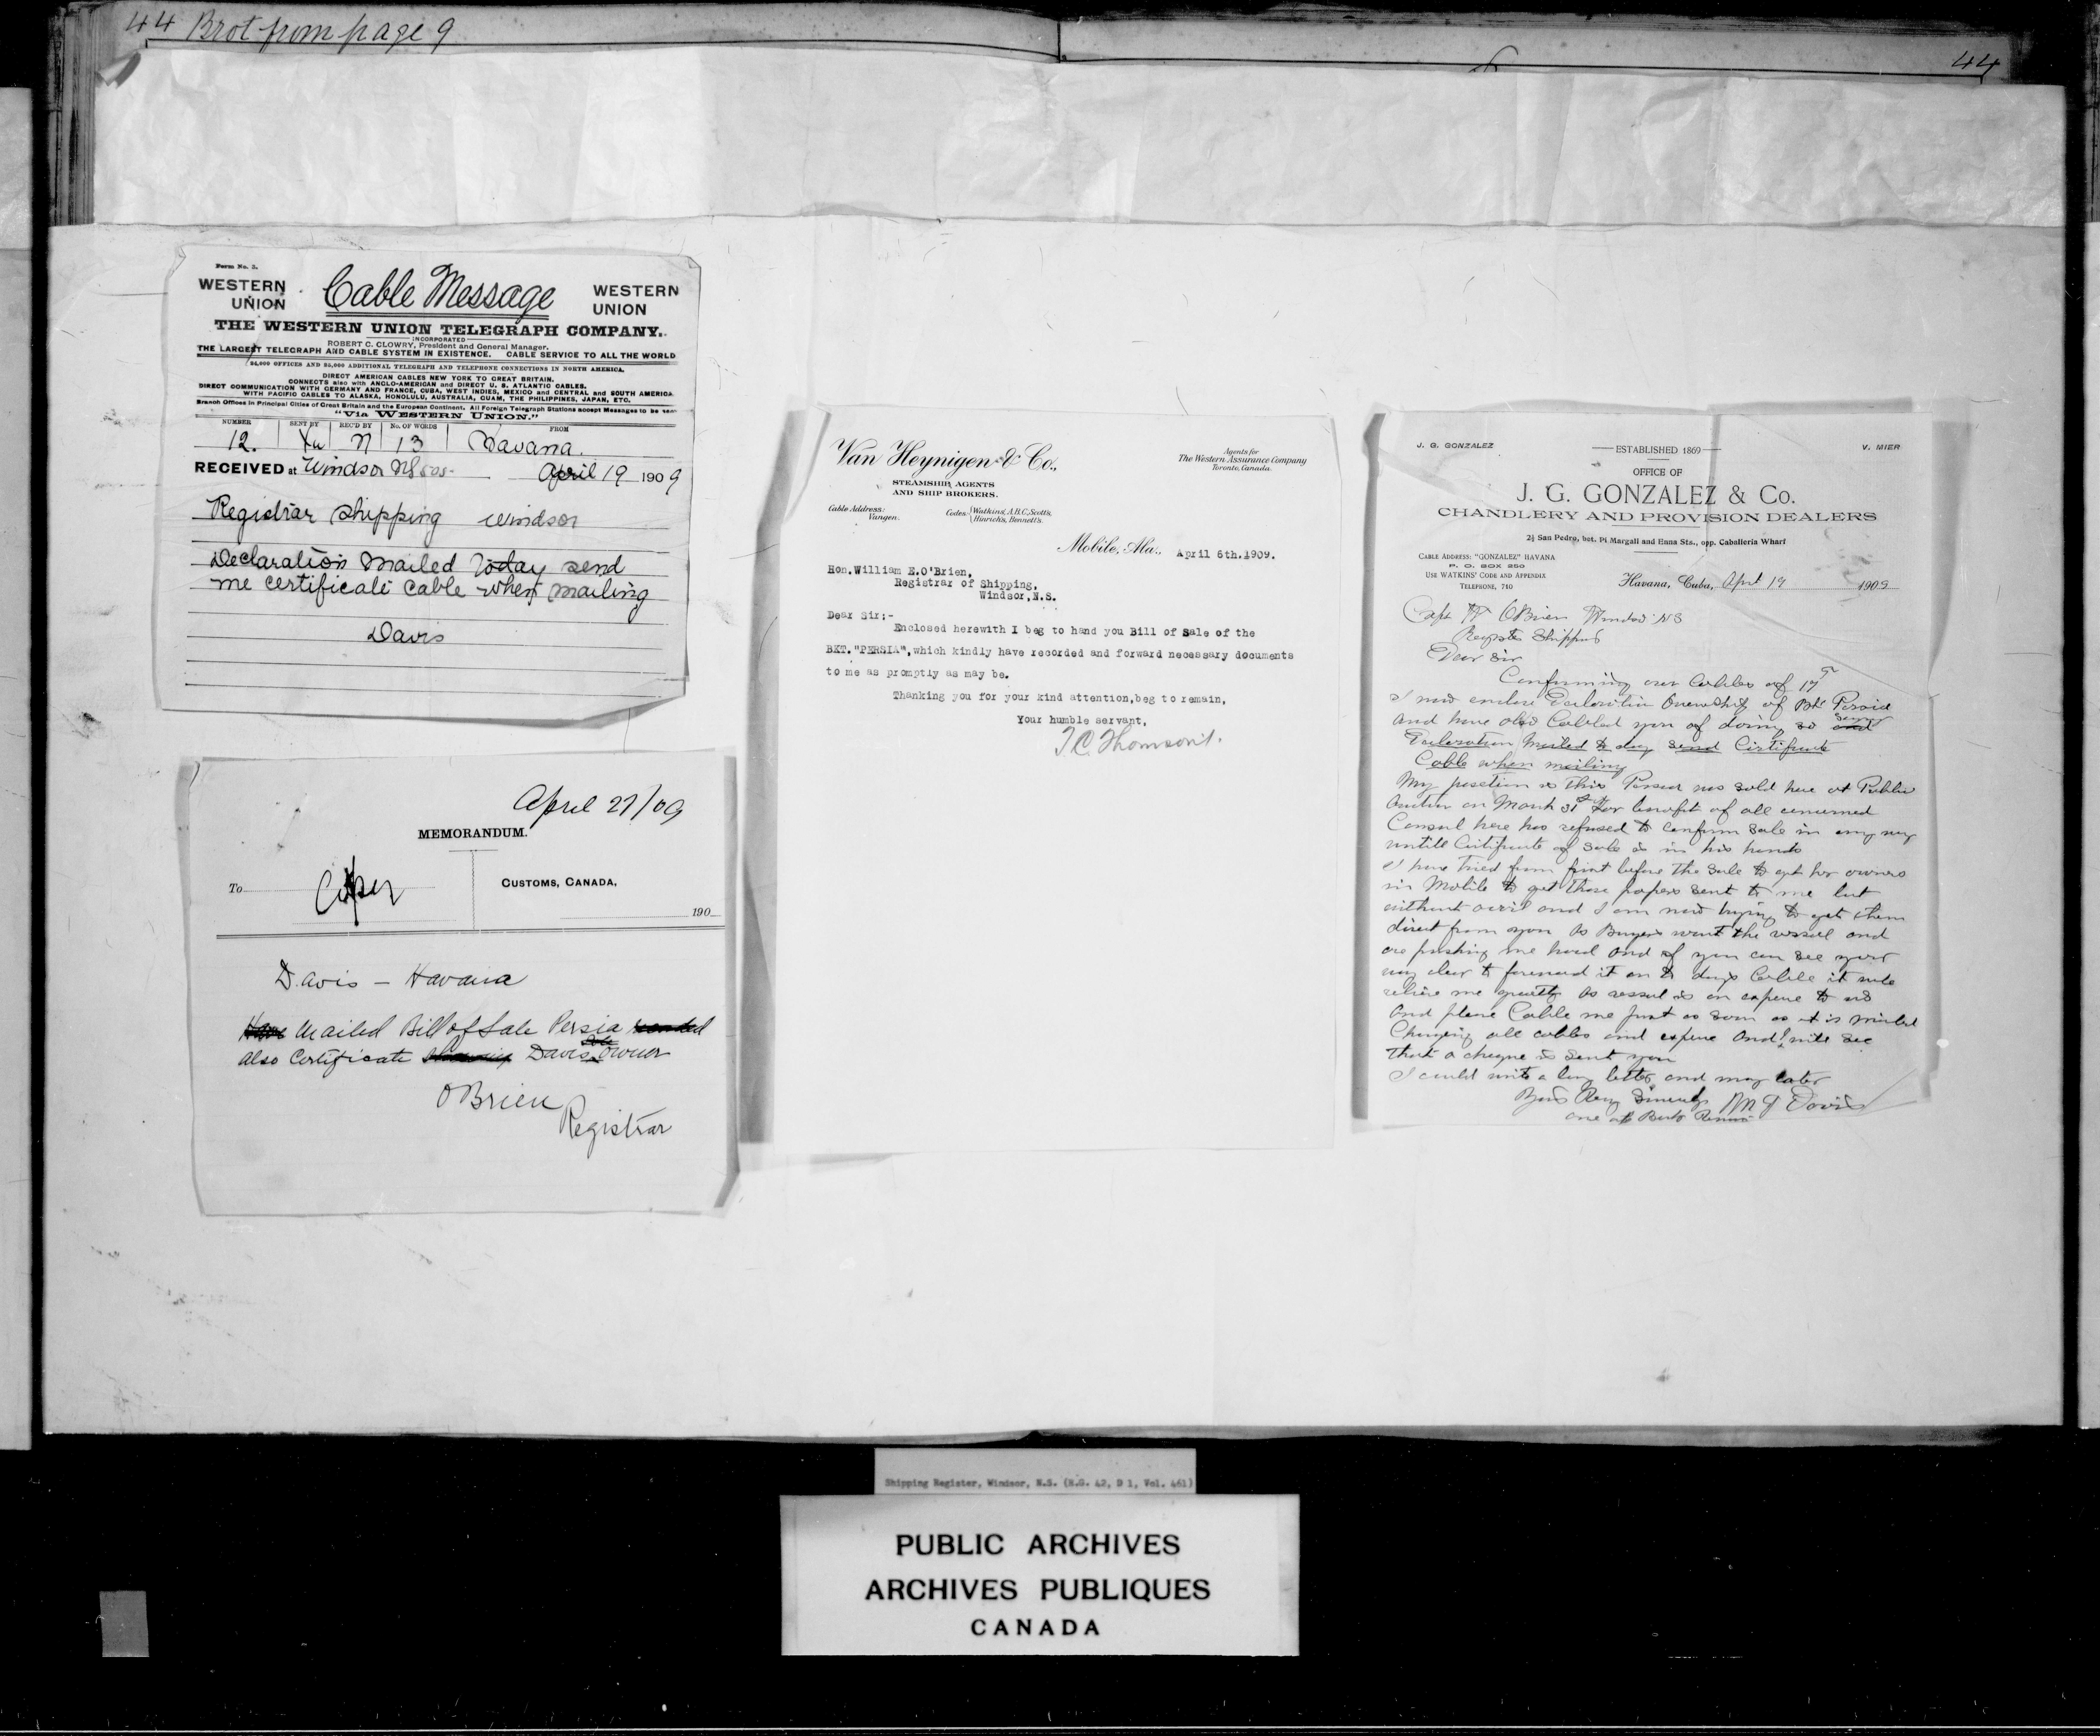 44 Brot from page 9
44
Form No. 2.
WESTERN UNION
Cable Message
WESTERN UNION
THE WESTERN UNION TELEGRAPH COMPANY.
INCORPORATED
ROBERT C. CLOWRY, President and General Manager.
THE LARGEST TELEGRAPH AND CABLE SYSTEM IN EXISTENCE. CABLE SERVICE TO ALL THE WORLD
24,000 OFFICES AND 25,000 ADDITIONAL TELEGRAPH AND TELEPHONE CONNECTIONS IN NORTH AMERICA.
DIRECT AMERICAN CABLES NEW YORK TO GREAT BRITAIN.
CONNECTS also with ANGLO-AMERICAN and DIRECT U. S. ATLANTIC CABLES.
DIRECT COMMUNICATION WITH GERMANY AND FRANCE, CUBA, WEST INDIES, MEXICO and CENTRAL and SOUTH AMERICA.
WITH PACIFIC CABLES TO ALASKA, HONOLULU, AUSTRALIA, GUAM, THE PHILIPPINES, JAPAN, ETC.
Branch Offices in Principal Cities of Great Britain and the European Continent. All Foreign Telegraph Stations accept Messages to be sent
"Via WESTERN UNION."
NUMBER SENT BY REC'D BY No. OF WORDS FROM
12. N 13 Havana.
RECEIVED at Windsor April 19 1909
Registrar Shipping Windsor
Declaration mailed today send
me certificate cable when mailing
Davis
April 27/09
MEMORANDUM.
To
CUSTOMS, CANADA,
190
Davis - Havana
Have Mailed Bill of Sale Persia
also Certificate Davis sole owner
OBrien
Registrar
Van Heynigen & Co.,
STEAMSHIP AGENTS
AND SHIP BROKERS.
Agents for
The Western Assurance Company
Toronto, Canada.
Cable Address:
Vangen.
Codes: Watkins', A.B.C., Scott's,
Hinrich's, Bennett's.
Mobile, Ala., April 6th.1909.
Hon.William E.O'Brien,
Registrar of Shipping,
Windsor,N.S.
Dear Sir:-
Enclosed herewith I beg to hand you Bill of Sale of the
BKT."PERSIA",which kindly have recorded and forward necessary documents
to me as promptly as may be.
Thanking you for your kind attention,beg to remain,
Your humble servant,
J. G. GONZALEZ
ESTABLISHED 1869
V. MIER
OFFICE OF
J. G. GONZALEZ & Co.
CHANDLERY AND PROVISION DEALERS
2½ San Pedro, bet. Pi Margall and Enna Sts., opp. Caballeria Wharf
CABLE ADDRESS: "GONZALEZ" HAVANA
P. O. BOX 250
USE WATKINS' CODE AND APPENDIX
TELEPHONE, 710
Havana, Cuba, April 19 1909
Capt W OBrien Windsor NS
Shipping
Dear Sir
Confirming our Cables of 17
I now enclose Declaration Ownership of Bkt Persia
and have also Cabled you of doing so
Declaration Mailed to day send Certificate
Cable when mailing
My position is this Persia was sold here at Public
Auction on March 31st for benefit of all concerned
Consul here has refused to confirm sale in any way
untill Certificate of Sale is in his hands
I have tried from first before the sale to get her owners
in Mobile to get those papers sent to me but
without avail and I am now trying to get them
direct from you As Buyers want the vessel and
are pushing me hard and if you can see your
way clear to forward it on to days Cable it will
relieve me greatly as vessel is on expense to us
And please Cable me just as soon as it is mailed
Charging all cables and expense and I will see
that a cheque is sent you
I could write a long letter and may later
Yours Very Sincerely Davis
Shipping Register, Windsor, N.S. (R.G. 42, D 1, Vol. 461)
PUBLIC ARCHIVES
ARCHIVES PUBLIQUES
CANADA